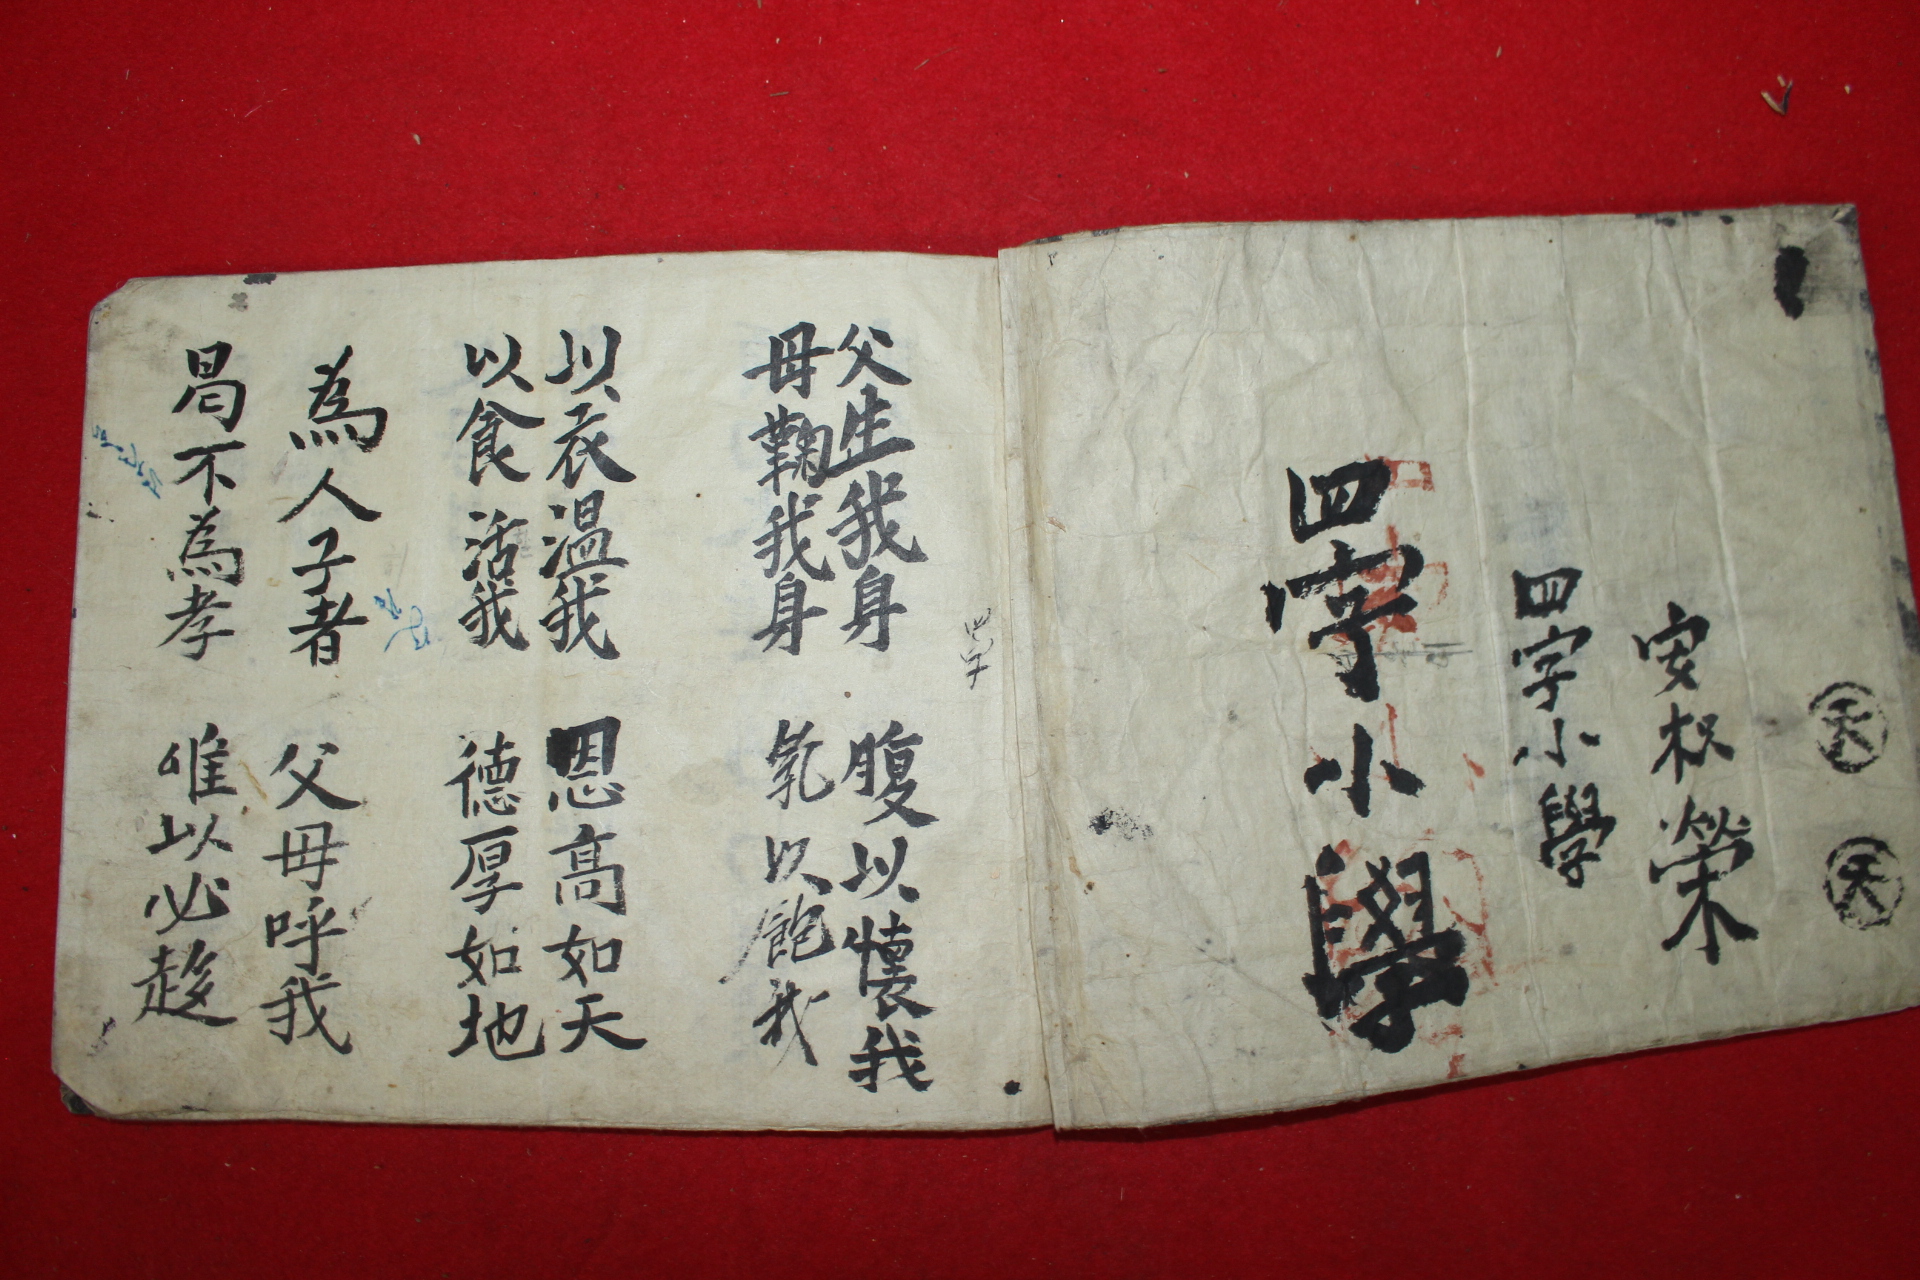 天
天
安松榮
四字小學
四字小學
四字
父生我身 腹以懷我
母鞠我身 乳以飽我
以衣溫我 恩高如天
以食活我 德厚如地
為人子者 父母呼我
曷不為孝 唯以必趍